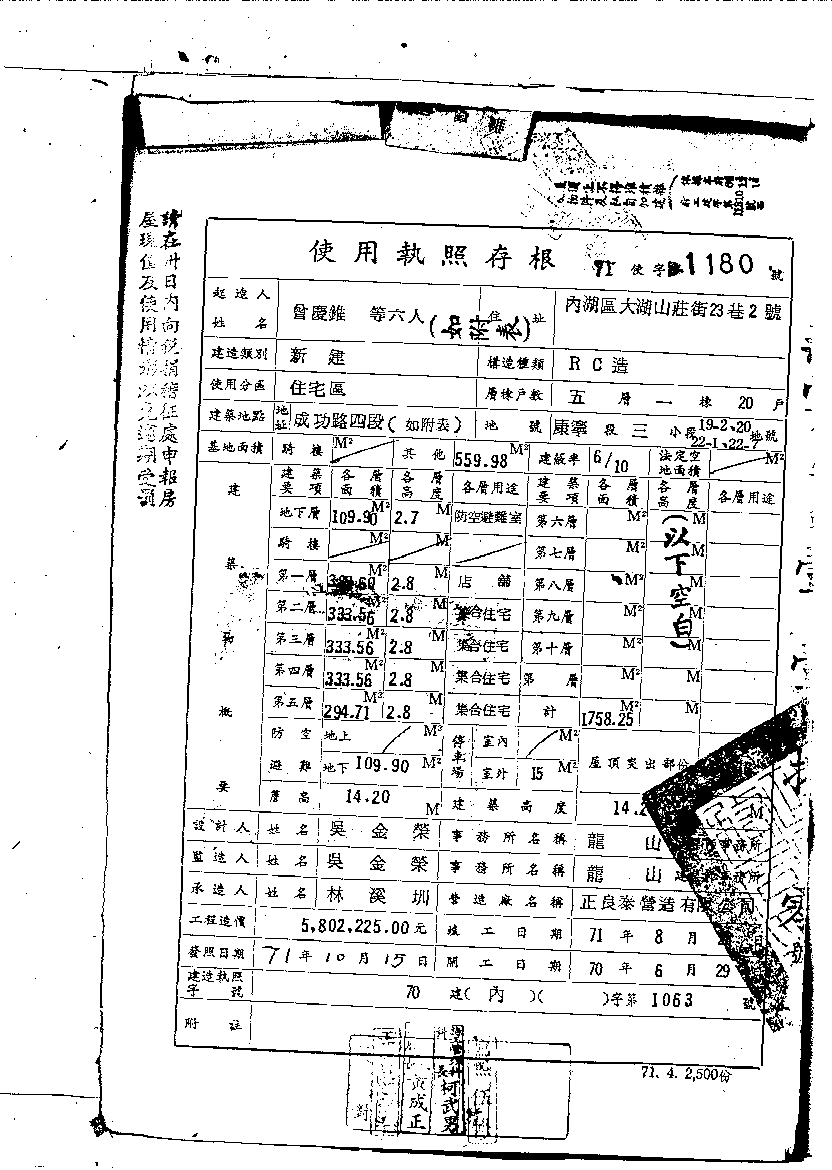 請在卅日內向稅捐稽征處申報房
屋現值及使用情形以免逾期受罰
使用執照存根 71 使字第1180號
起造人姓名 曾慶錐 等六人(如附表) 住址 內湖區大湖山莊街23巷2號
建造類別 新建 構造種類 RC造
使用分區 住宅區 層棟戶數 五層一棟20戶
建築地點 地址 成功路四段(如附表) 地號 康寧段三小段19-2、20 22-1、22-7地號
基地面積 騎樓 M² 其他 559.98 M² 建蔽率 6/10 法定空地面積 M²
建築物概要
建築要項 各層面積 各層高度 各層用途 建築要項 各層面積 各層高度 各層用途
地下層 109.90 M² 2.7 M 防空避難室 第六層 M² M
騎樓 M² M 第七層 M² M
第一層 M² 2.8 M 店舖 第八層 M² M
第二層 333.56 M² 2.8 M 集合住宅 第九層 M² M
第三層 333.56 M² 2.8 M 集合住宅 第十層 M² M
第四層 333.56 M² 2.8 M 集合住宅 第 層 M² M
第五層 294.71 M² 2.8 M 集合住宅 計 1758.25 M² M
(以下空白)
防空避難 地上 M² 停車場 室內 M² 屋頂突出部份
地下 109.90 M² 室外 15 M²
簷高 14.20 M 建築高度 14.2 M
設計人 姓名 吳金榮 事務所名稱 龍山 事務所
監造人 姓名 吳金榮 事務所名稱 龍山建 事務所
承造人 姓名 林溪圳 營造廠名稱 正良泰營造有限公司
工程造價 5,802,225.00元 竣工日期 71年8月
發照日期 71年10月15日 開工日期 70年6月29
建造執照字號 70建(內)( )字第1063號
附註
71. 4. 2,500份
柯武男
黃成正